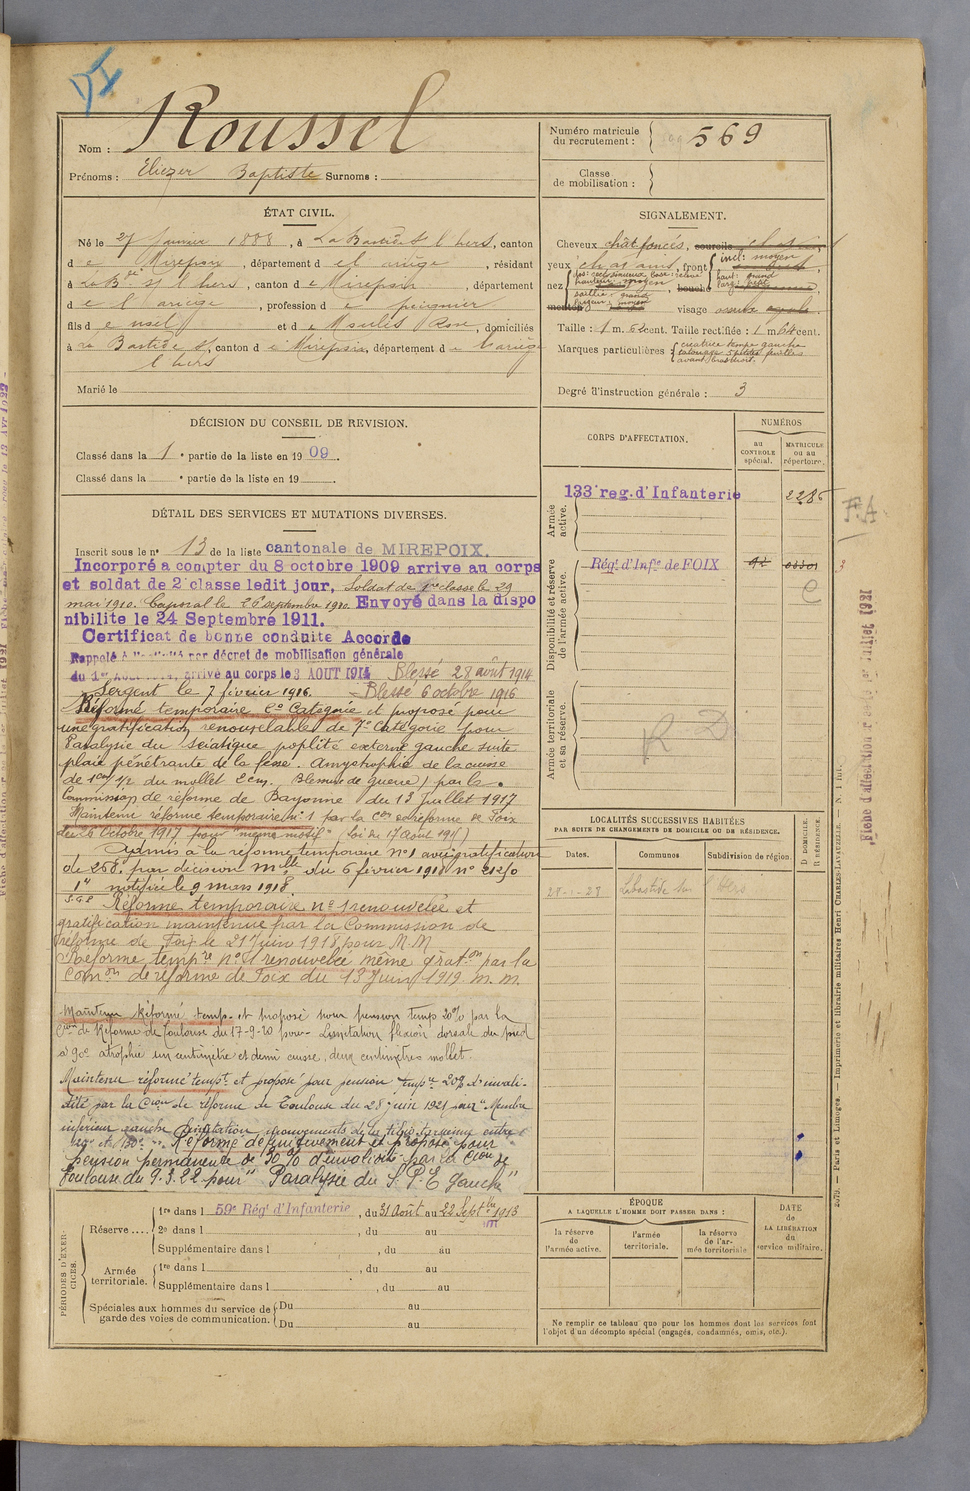 Nom : Roussel
Prénoms : Eliezer Baptiste Surnoms :
Numéro matricule du recrutement : 569
Classe de mobilisation :
ÉTAT CIVIL.
Né le 27 janvier 1888, à La Bastide S/ l'hers, canton
de Mirepoix, département d el ariège, résidant
à La Bde S/ l'hers, canton de Mirepoix, département
de l'ariège, profession de
fils de et de Moulis Rose, domiciliés
à La Bastide S/, canton de Mirepoix, département de l'ariège
l'hers
Marié le
SIGNALEMENT.
Cheveux chât foncés, sourcils
yeux châtains, front { incl: moyen
haut: grand
nez moyen, bouche
menton visage osseux
Taille : 1 m. 62 cent. Taille rectifiée : 1 m. 64 cent.
Marques particulières : cicatrice tempe gauche
tatouage 5 petites
avant bras droit.
Degré d'instruction générale : 3
DÉCISION DU CONSEIL DE REVISION.
Classé dans la 1e partie de la liste en 1909.
Classé dans la e partie de la liste en 19
CORPS D'AFFECTATION.
NUMÉROS
au CONTROLE spécial.
MATRICULE ou au répertoire.
Armée active.
133e reg. d'Infanterie
2285
Disponibilité et réserve de l'armée active.
Régt d'Infie de FOIX
Armée territoriale et sa réserve.
R. D.
F.A
DÉTAIL DES SERVICES ET MUTATIONS DIVERSES.
Inscrit sous le n° 13 de la liste cantonale de MIREPOIX.
Incorporé a compter du 8 octobre 1909 arrive au corps
et soldat de 2e classe ledit jour, Soldat de 1re classe le 29
mai 1910. Caporal le 26 septembre 1910. Envoyé dans la dispo
nibilite le 24 Septembre 1911.
Certificat de bonne conduite Accordé
Rappelé à l'activité par décret de mobilisation générale
du 1er AOUT 1914, arrivé au corps le 3 AOUT 1914 Blessé 28 août 1914
Sergent le 7 février 1916. — Blessé 6 octobre 1916
Réformé temporaire 2e Catégorie et proposé pour
une gratification renouvelable de 7e Catégorie pour
Paralysie du sciatique poplité externe gauche suite
plaie pénétrante de la fesse. Amyotrophie de la cuisse
de 1cm 1/2 du mollet 2cm. Blessure de guerre) par la
Commission de réforme de Bayonne du 13 juillet 1917
Maintenu réformé temporaire n° 1 par la Con de réforme de Foix
du 26 Octobre 1917 pour "même motif" (Loi du 17 août 1917)
Admis à la réforme temporaire n° 1 avec gratification
de 268f par décision mlle du 6 février 1918 n° 21250
notifiée le 9 mars 1918.
Réforme temporaire n° 1 renouvelée et
gratification maintenue par la Commission de
réforme de Foix le 21 Juin 1918, pour M.M
Réforme tempre n° 1 renouvelée même graton par la
Comon de réforme de Foix du 13 Juin 1919 m. m.
Maintenu Réformé temp. et proposé pour pension temp 20% par la
Con de Réforme de Toulouse du 17-9-20 pour Limitation flexion dorsale du pied
à 90° atrophie un centimètre et demi cuisse, deux centimètres mollet.
Maintenu réformé tempre et proposé pour pension tempre 20% d'invali-
dité par la Con de réforme de Toulouse du 28 juin 1921 pour "Membre
inférieur gauche limitation mouvements de la tibio tarsienne entre
Réformé définitivement et proposé pour
pension permanente de 30% d'invalidité par la Con de
Toulouse du 9.3.22 pour "Paralysie du S.P.E gauche"
LOCALITÉS SUCCESSIVES HABITÉES
PAR SUITE DE CHANGEMENTS DE DOMICILE OU DE RÉSIDENCE.
Dates. Communes Subdivision de région. D DOMICILE. R RÉSIDENCE.
Labastide sur l'Hers
PÉRIODES D'EXERCICES.
Réserve.... 1re dans l 59e Régt d'Infanterie, du 31 août au 22 Septbre 1913
2e dans l , du au
Supplémentaire dans l , du au
Armée territoriale. 1re dans l , du au
Supplémentaire dans l , du au
Spéciales aux hommes du service de garde des voies de communication. Du au
Du au
ÉPOQUE
A LAQUELLE L'HOMME DOIT PASSER DANS :
la réserve de l'armée active.
l'armée territoriale.
la réserve de l'armée territoriale
DATE de LA LIBÉRATION du service militaire.
Ne remplir ce tableau que pour les hommes dont les services font
l'objet d'un décompte spécial (engagés, condamnés, omis, etc.).
Paris et Limoges. — Imprimerie et librairie militaires Henri CHARLES-LAVAUZELLE.